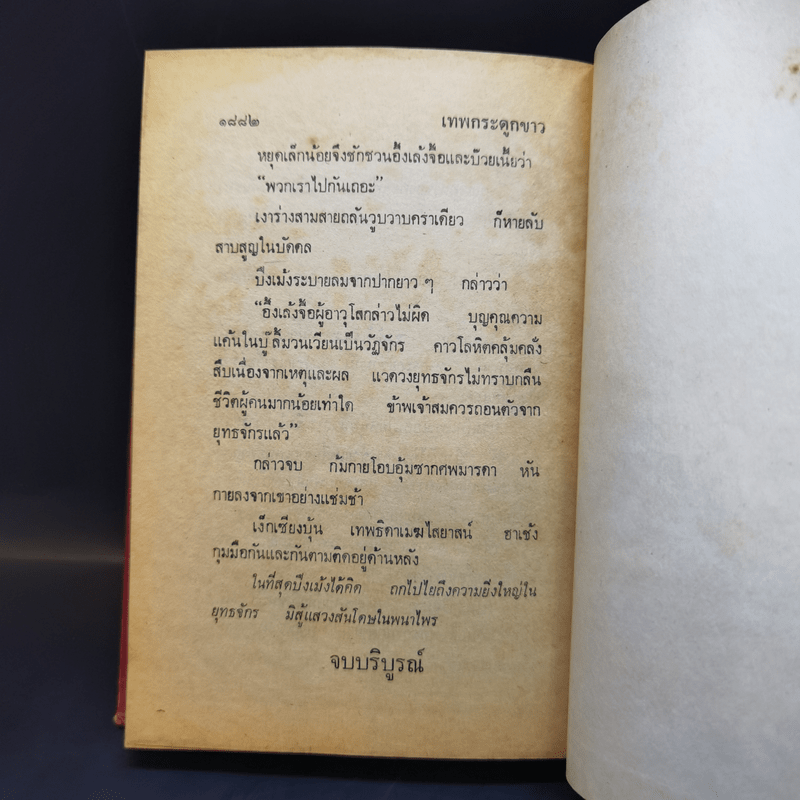 ๑๘๘๒ เทพกระดูกขาว
หยุดเล็กน้อยจึงชักชวนอึ้งเล้งจื้อและบ๊วยเนี้ยว่า
“พวกเราไปกันเถอะ”
เงาร่างสามสายถลันวูบวาบคราเดียว ก็หายลับ
สาบสูญในบัดดล
บึงเม้งระบายลมจากปากยาว ๆ กล่าวว่า
“อึ้งเล้งจื้อผู้อาวุโสกล่าวไม่ผิด บุญคุณความ
แค้นในบู๊ลิ้มวนเวียนเป็นวัฏจักร คาวโลหิตคลุ้มคลั่ง
สืบเนื่องจากเหตุและผล แวดวงยุทธจักรไม่ทราบกลืน
ชีวิตผู้คนมากน้อยเท่าใด ข้าพเจ้าสมควรถอนตัวจาก
ยุทธจักรแล้ว”
กล่าวจบ ก้มกายโอบอุ้มซากศพมารดา หัน
กายลงจากเขาอย่างแช่มช้า
เง็กเซียงบุ้น เทพธิดาเมฆไสยาสน์ ฮาเชัง
กุมมือกันและกันตามติดอยู่ด้านหลัง
ในที่สุดบึงเม้งได้คิด ถกไปไยถึงความยิ่งใหญ่ใน
ยุทธจักร มิสู้แสวงสันโดษในพนาไพร
จบบริบูรณ์